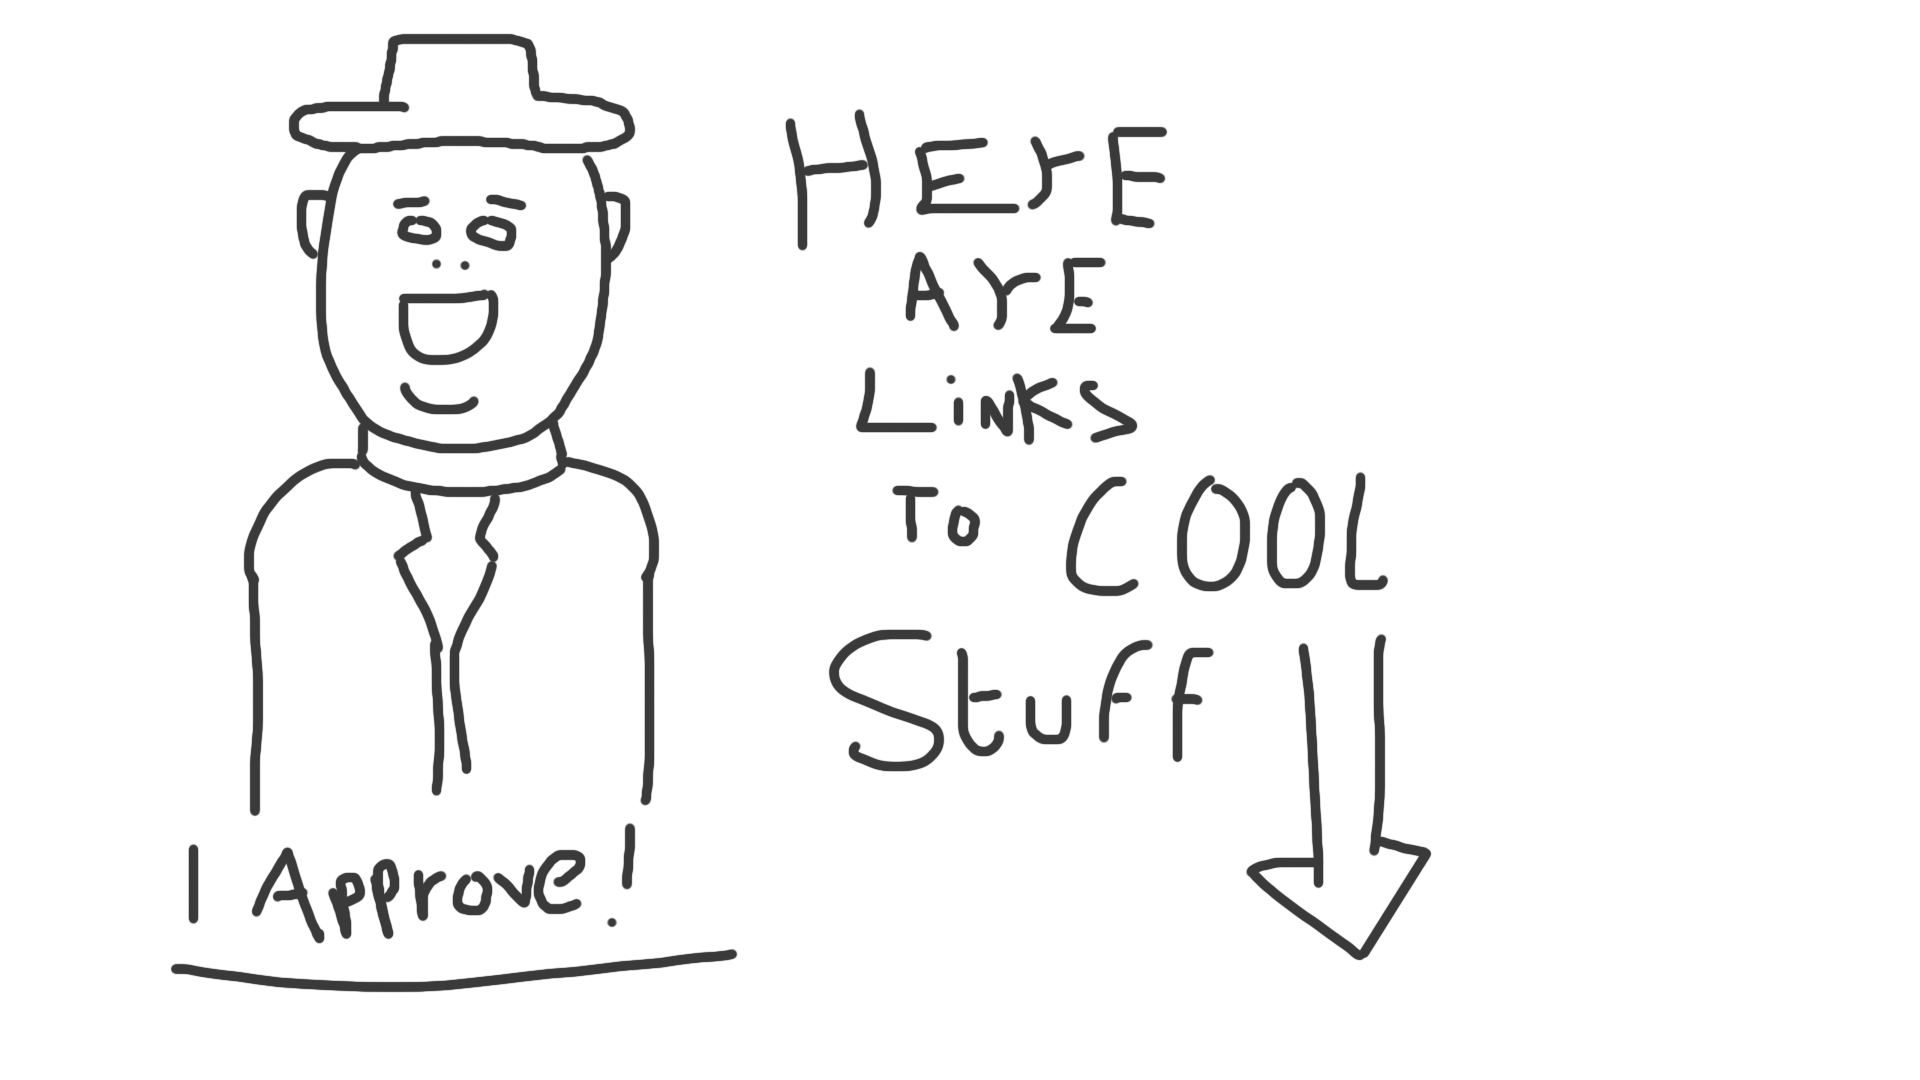 HErE
ArE
LiNKS
To COOL
Stuff
I Approve!